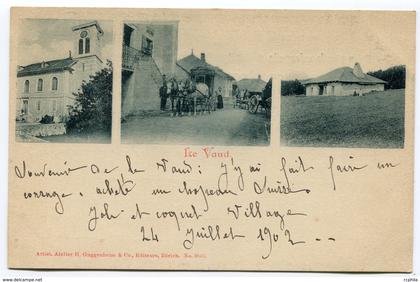 Le Vaud.
Souvenir de la Vaud: j'y ai fait faire un
corsage, acheté un chapeau Suisse
Joli et coquet Village
24 Juillet 1902 --
Artist. Atelier H. Guggenheim & Co., Editeurs, Zürich. No.